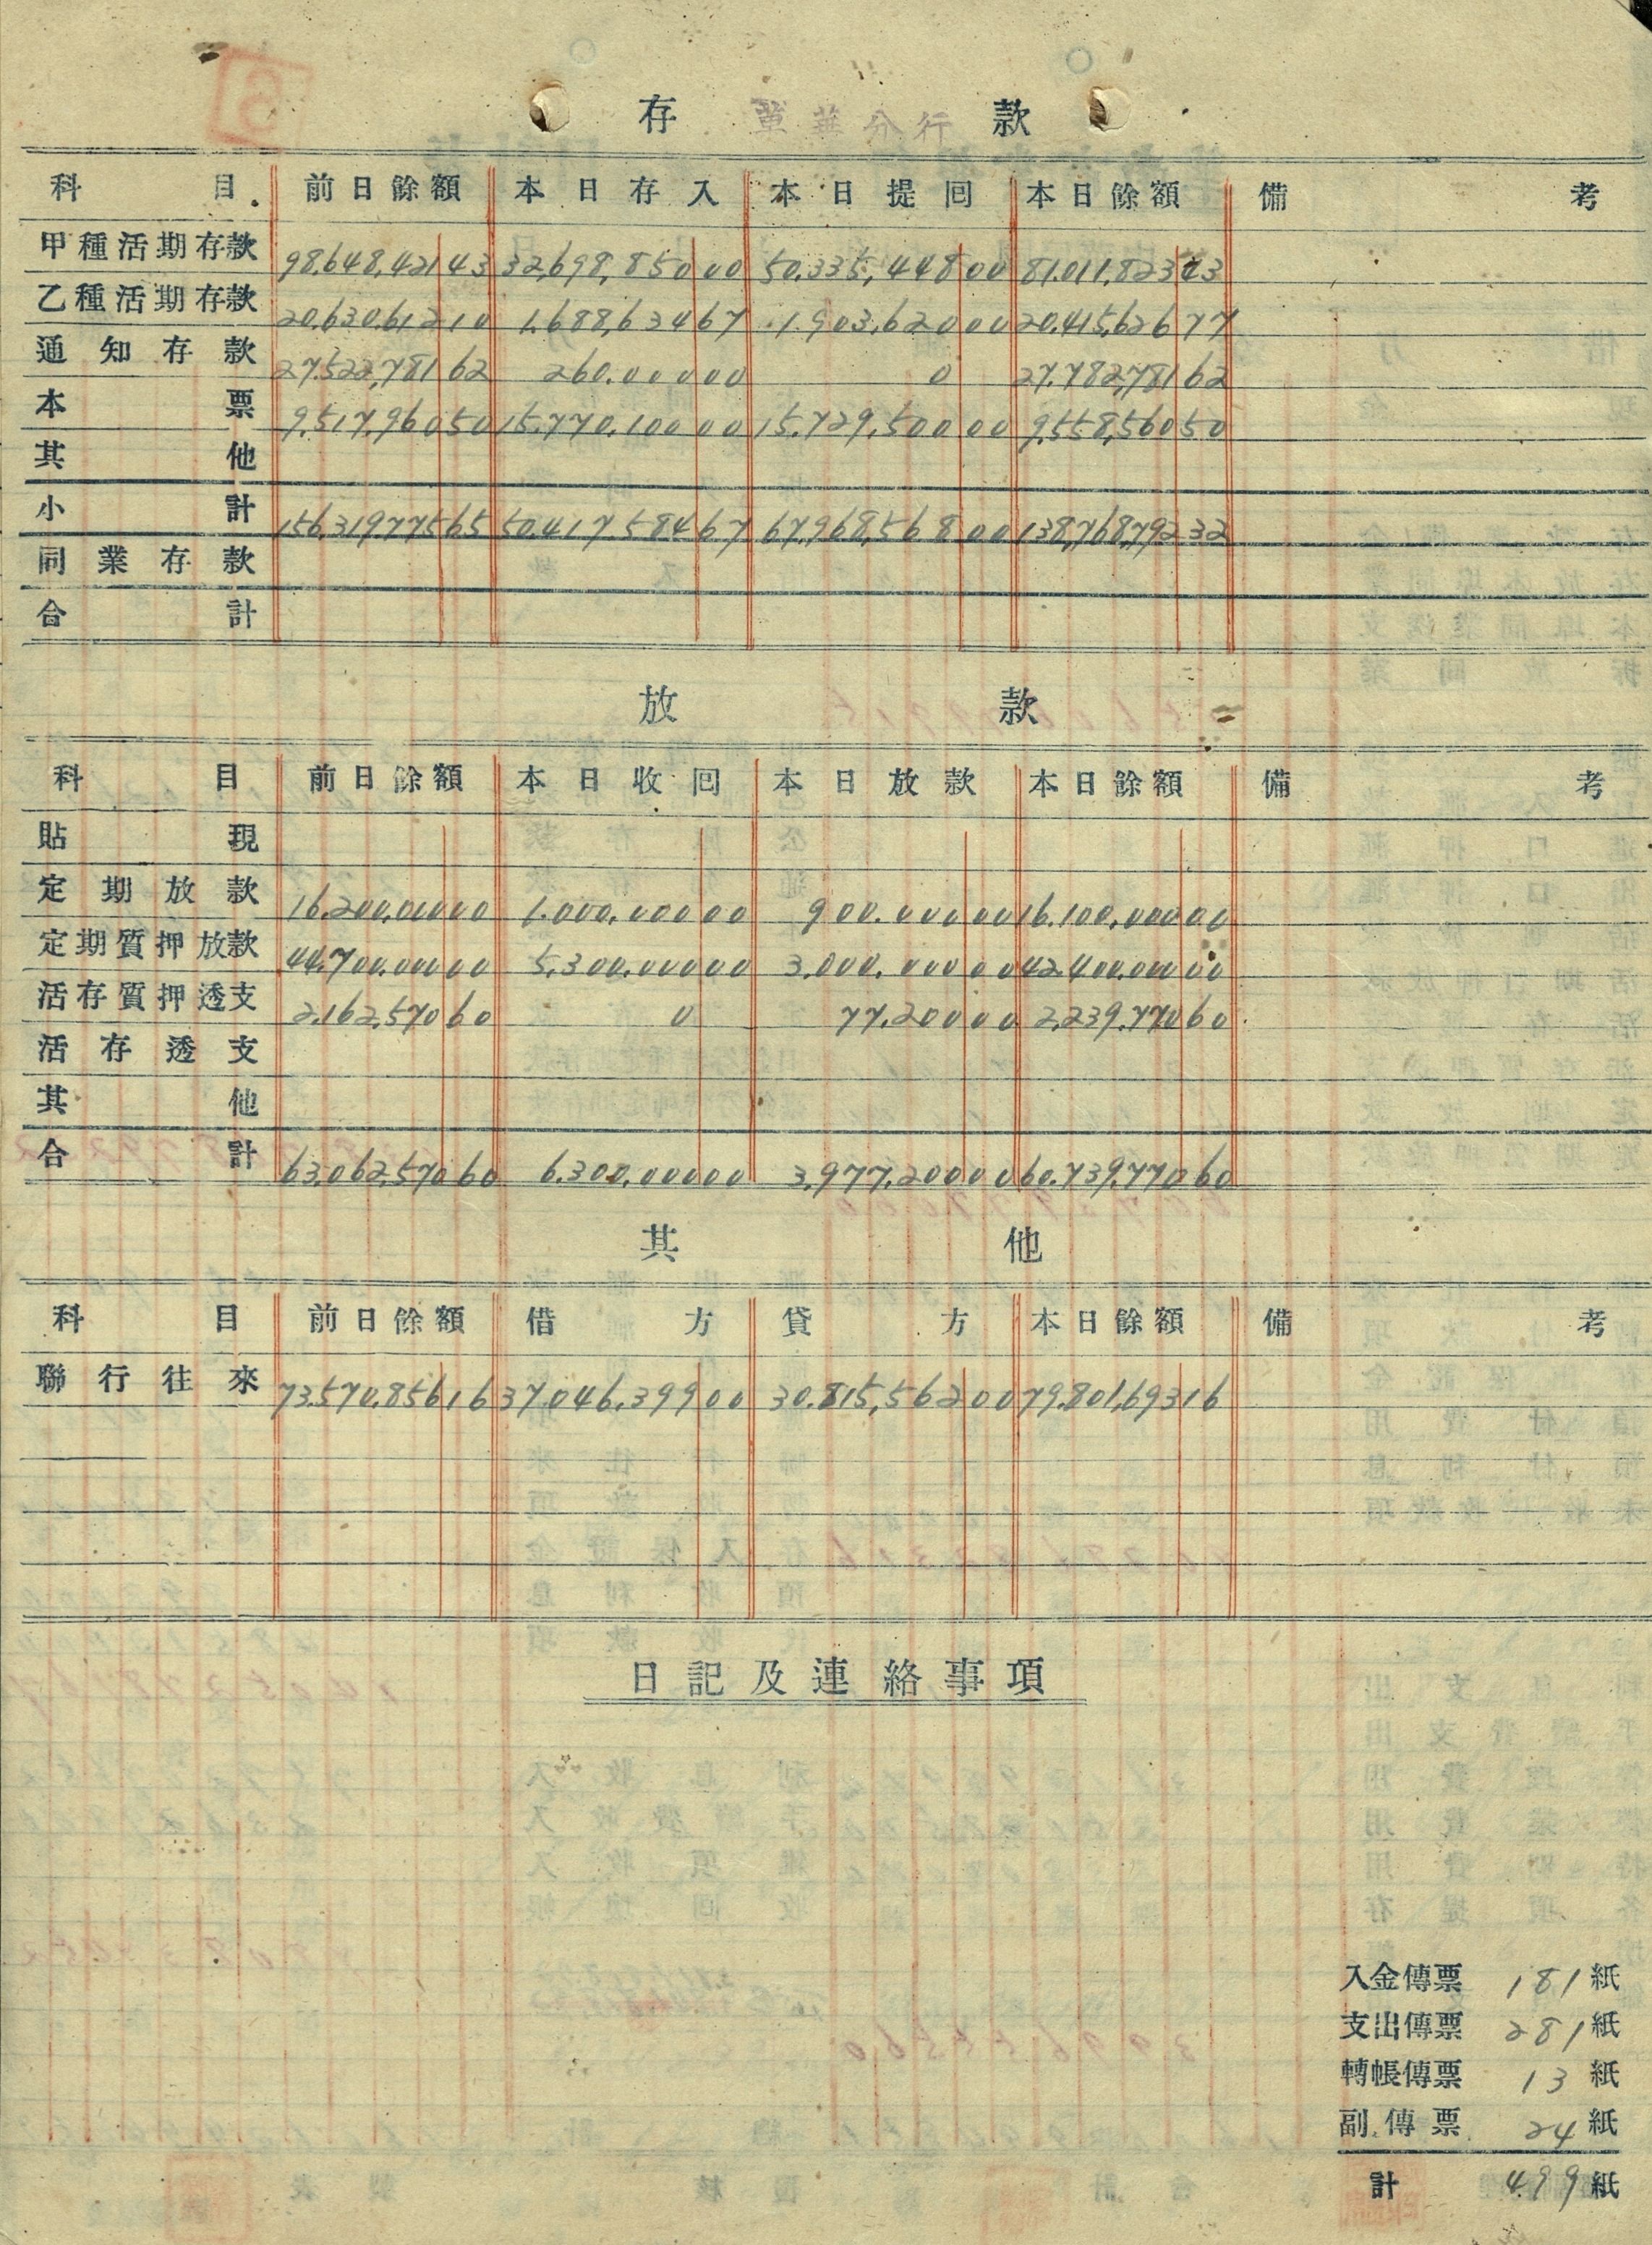 存 萬華分行 款
科目 前日餘額 本日存入 本日提回 本日餘額 備考
甲種活期存款 98,648,421 43 32,698,850 00 50,335,448 00 81,011,823 43
乙種活期存款 20,630,612 10 1,688,634 67 1,903,620 00 20,415,626 77
通知存款 27,522,781 62 260,000 00 0 27,782,781 62
本票 9,517,960 50 15,770,100 00 15,729,500 00 9,558,560 50
其他
小計 156,319,775 65 50,417,584 67 67,968,568 00 138,768,792 32
同業存款
合計
放款
科目 前日餘額 本日收回 本日放款 本日餘額 備考
貼現
定期放款 16,200,000 00 1,000,000 00 900,000 00 16,100,000 00
定期質押放款 44,700,000 00 5,300,000 00 3,000,000 00 42,400,000 00
活存質押透支 2,162,570 60 0 77,200 00 2,239,770 60
活存透支
其他
合計 63,062,570 60 6,300,000 00 3,977,200 00 60,739,770 60
其他
科目 前日餘額 借方 貸方 本日餘額 備考
聯行往來 73,570,856 16 37,046,399 00 30,815,562 00 79,801,693 16
日記及連絡事項
入金傳票 181 紙
支出傳票 281 紙
轉帳傳票 13 紙
副傳票 24 紙
計 499 紙